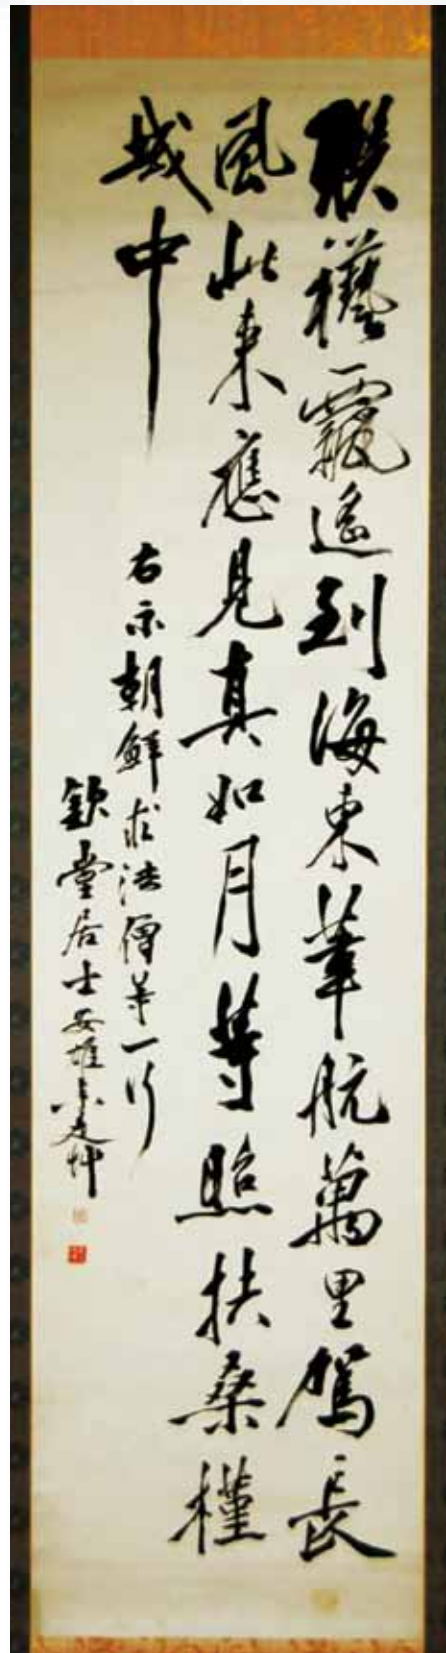 聯襼飄遙到海東葦航萬里駕長
風此來應見真如月等照扶桑槿
域中
右示朝鮮求法僧等一行
欽堂居士